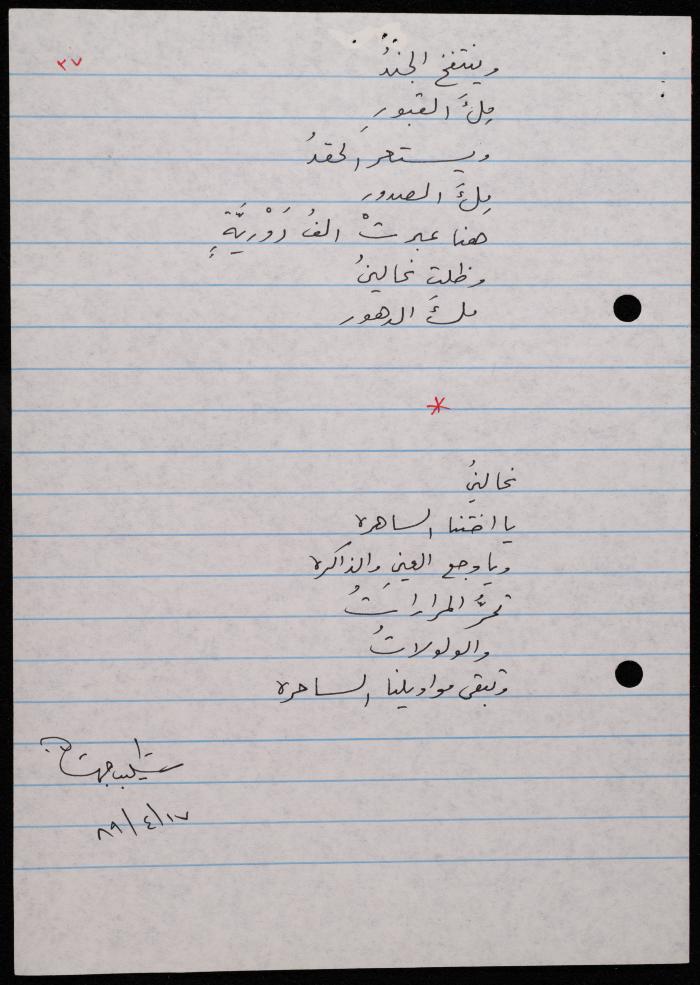 ٢٧
وينتفخ الجندُ
مِلءَ القبورِ
ويستعر الحقدُ
مِلءَ الصدور
هنا عبرتْ الفُ دَوْرِيَّةٍ
وظلت نحالينُ
ملءَ الدهور
*
نحالينُ
يا اختنا الساهره
ويا وجع العينِ والذاكره
تمرُّ المراراتُ
والولولاتُ
وتبقى مواويلنا الساحره
شكيب جهشان
٨٩/٤/١٧